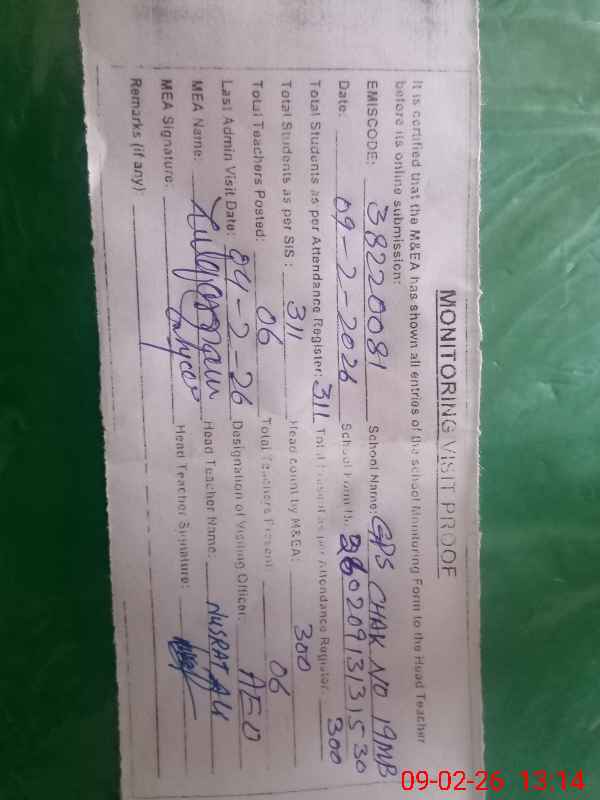 MONITORING VISIT PROOF
It is certified that the M&EA has shown all entries of the school Monitoring Form to the Head Teacher
before its online submission:
EMISCODE: 38220081 School Name: GPS CHAK NO 19MB
Date: 09-2-2026 School Form No 260209131530
Total Students as per Attendance Register: 311 Total Present as per Attendance Register: 300
Total Students as per SIS: 311 Head count by M&EA: 300
Total Teachers Posted: 06 Total Teachers Present: 06
Last Admin Visit Date: 04-2-26 Designation of Visiting Officer: AEO
MEA Name: Head Teacher Name: NUSRAT ALI
MEA Signature: Head Teacher Signature:
Remarks (if any)
09-02-26 13:14